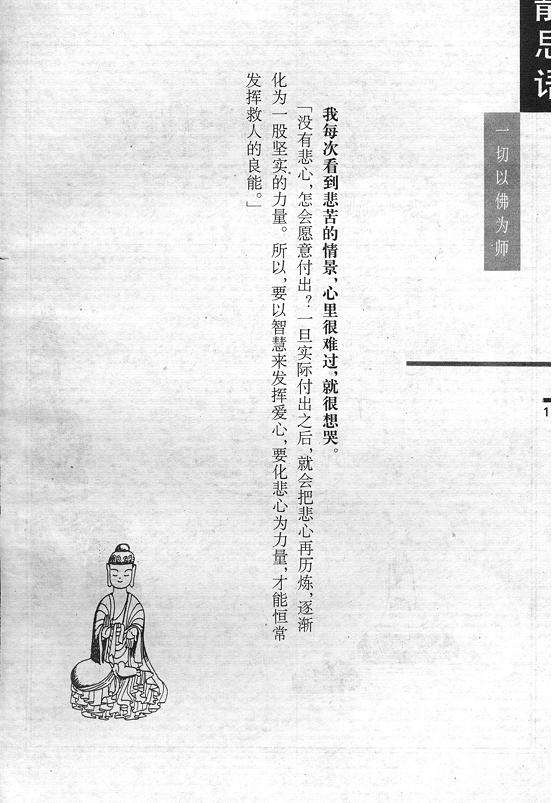 静思语
一切以佛为师
1
我每次看到悲苦的情景，心里很难过，就很想哭。
「没有悲心，怎会愿意付出？一旦实际付出之后，就会把悲心再历炼，逐渐
化为一股坚实的力量。所以，要以智慧来发挥爱心，要化悲心为力量，才能恒常
发挥救人的良能。」